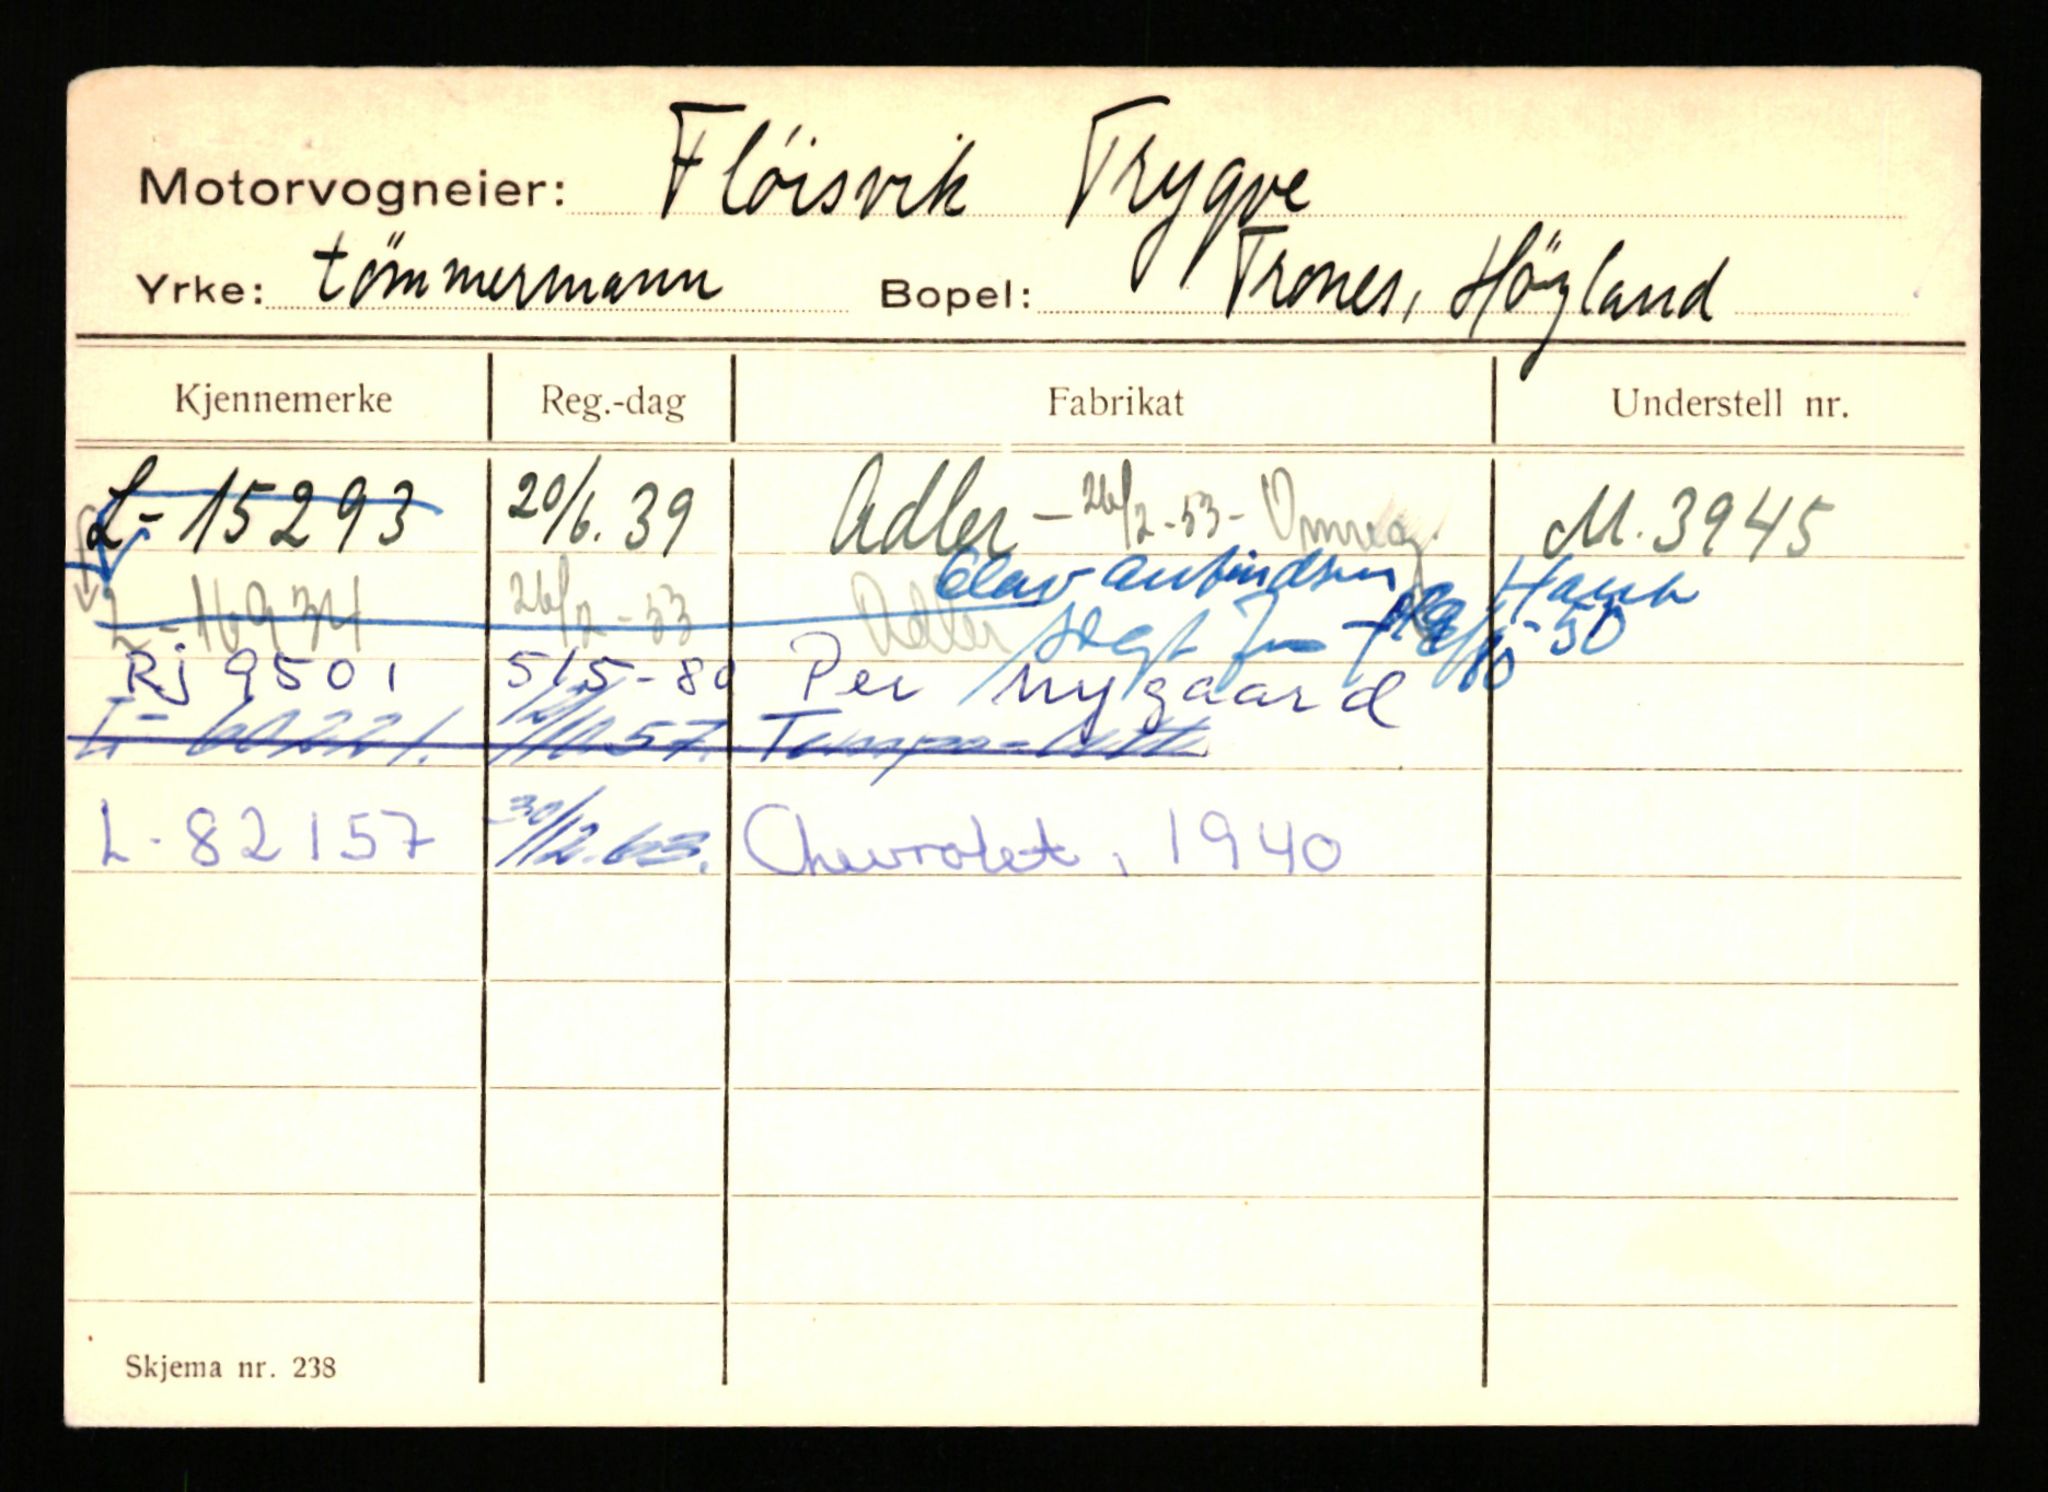 Motorvogneier: Flöisvik Trygve
Yrke: tömmermann Bopel: Trones, Höyland
Kjennemerke Reg.-dag Fabrikat Understell nr.
L- 15293 20/6. 39 Adler - 26/2-53- Omreg. M. 3945
L- 16934 26/2-53 Adler Olav Hauk
solgt
Rj 9501 5/5-80 Per nygaard
L- 60221. 57. Tempo-
L- 82157 30/12.63. Chevrolet, 1940
Skjema nr. 238